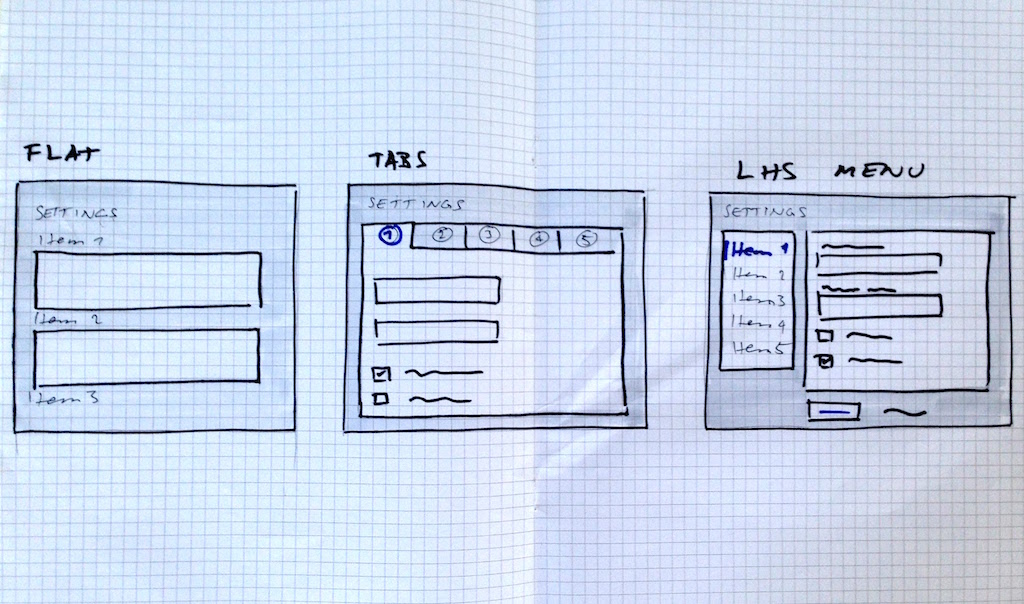 FLAT
SETTINGS
Item 1
Item 2
Item 3
TABS
SETTINGS
1 2 3 4 5
LHS MENU
SETTINGS
Item 1
Item 2
Item 3
Item 4
Item 5